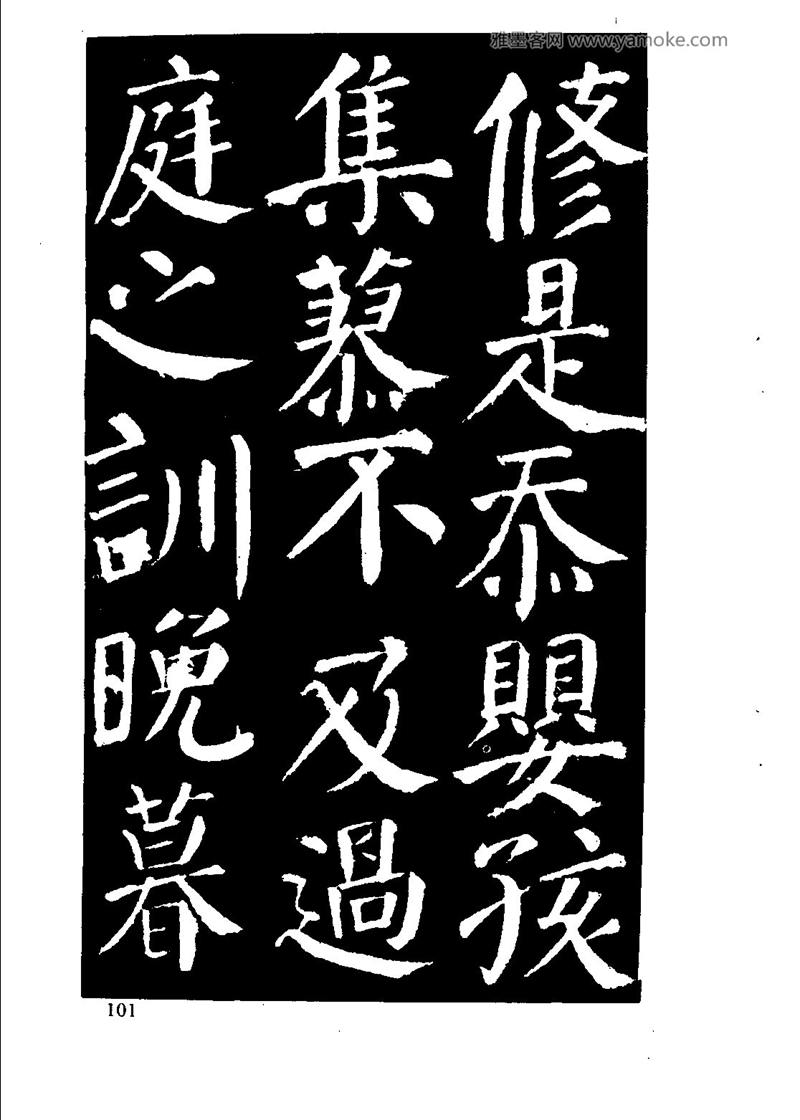 雅墨客网 www.yamoke.com
修是忝嬰孩
集蓼不及過
庭之訓晚暮
101